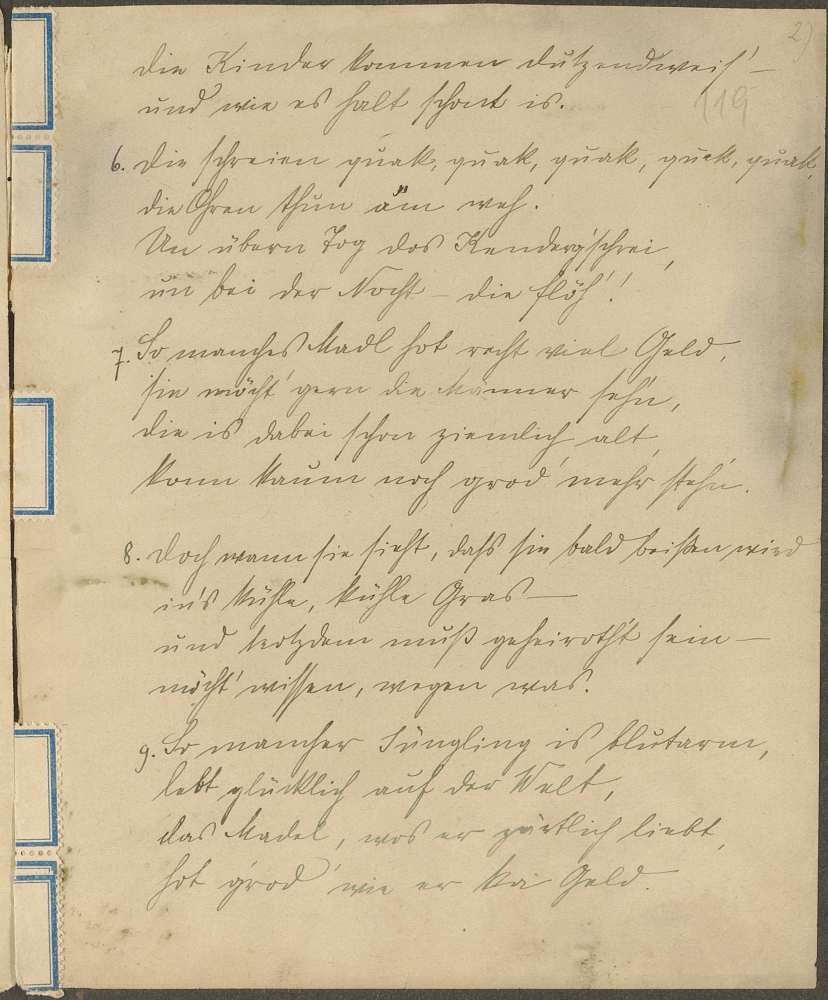 2)
119
die Kinder kommen dutzendweis' –
und wie es halt schont is.
6. Die schreien quak, quak, quak, quak, quak,
die Ohren thun äm weh.
Un übern Tog dos Kenderg'schrei,
un bei der Nocht – die flöh'!
7. So manches Madl hot recht viel Geld,
sie möcht' gern die Männer seh'n,
die is dabei schon ziemlich alt,
konn kaum noch grod' mehr steh'n.
8. Doch wann sie sieht, dass sie bald beißen wird
in's kühle, kühle Gras –
und trotzdem muß geheiroth't sein –
möcht' wissen, wegen was.
9. So mancher Jüngling is blutarm,
lebt glücklich auf der Welt,
das Madel, wos er zärtlich liebt,
hot g'rod' wie er kai Geld.